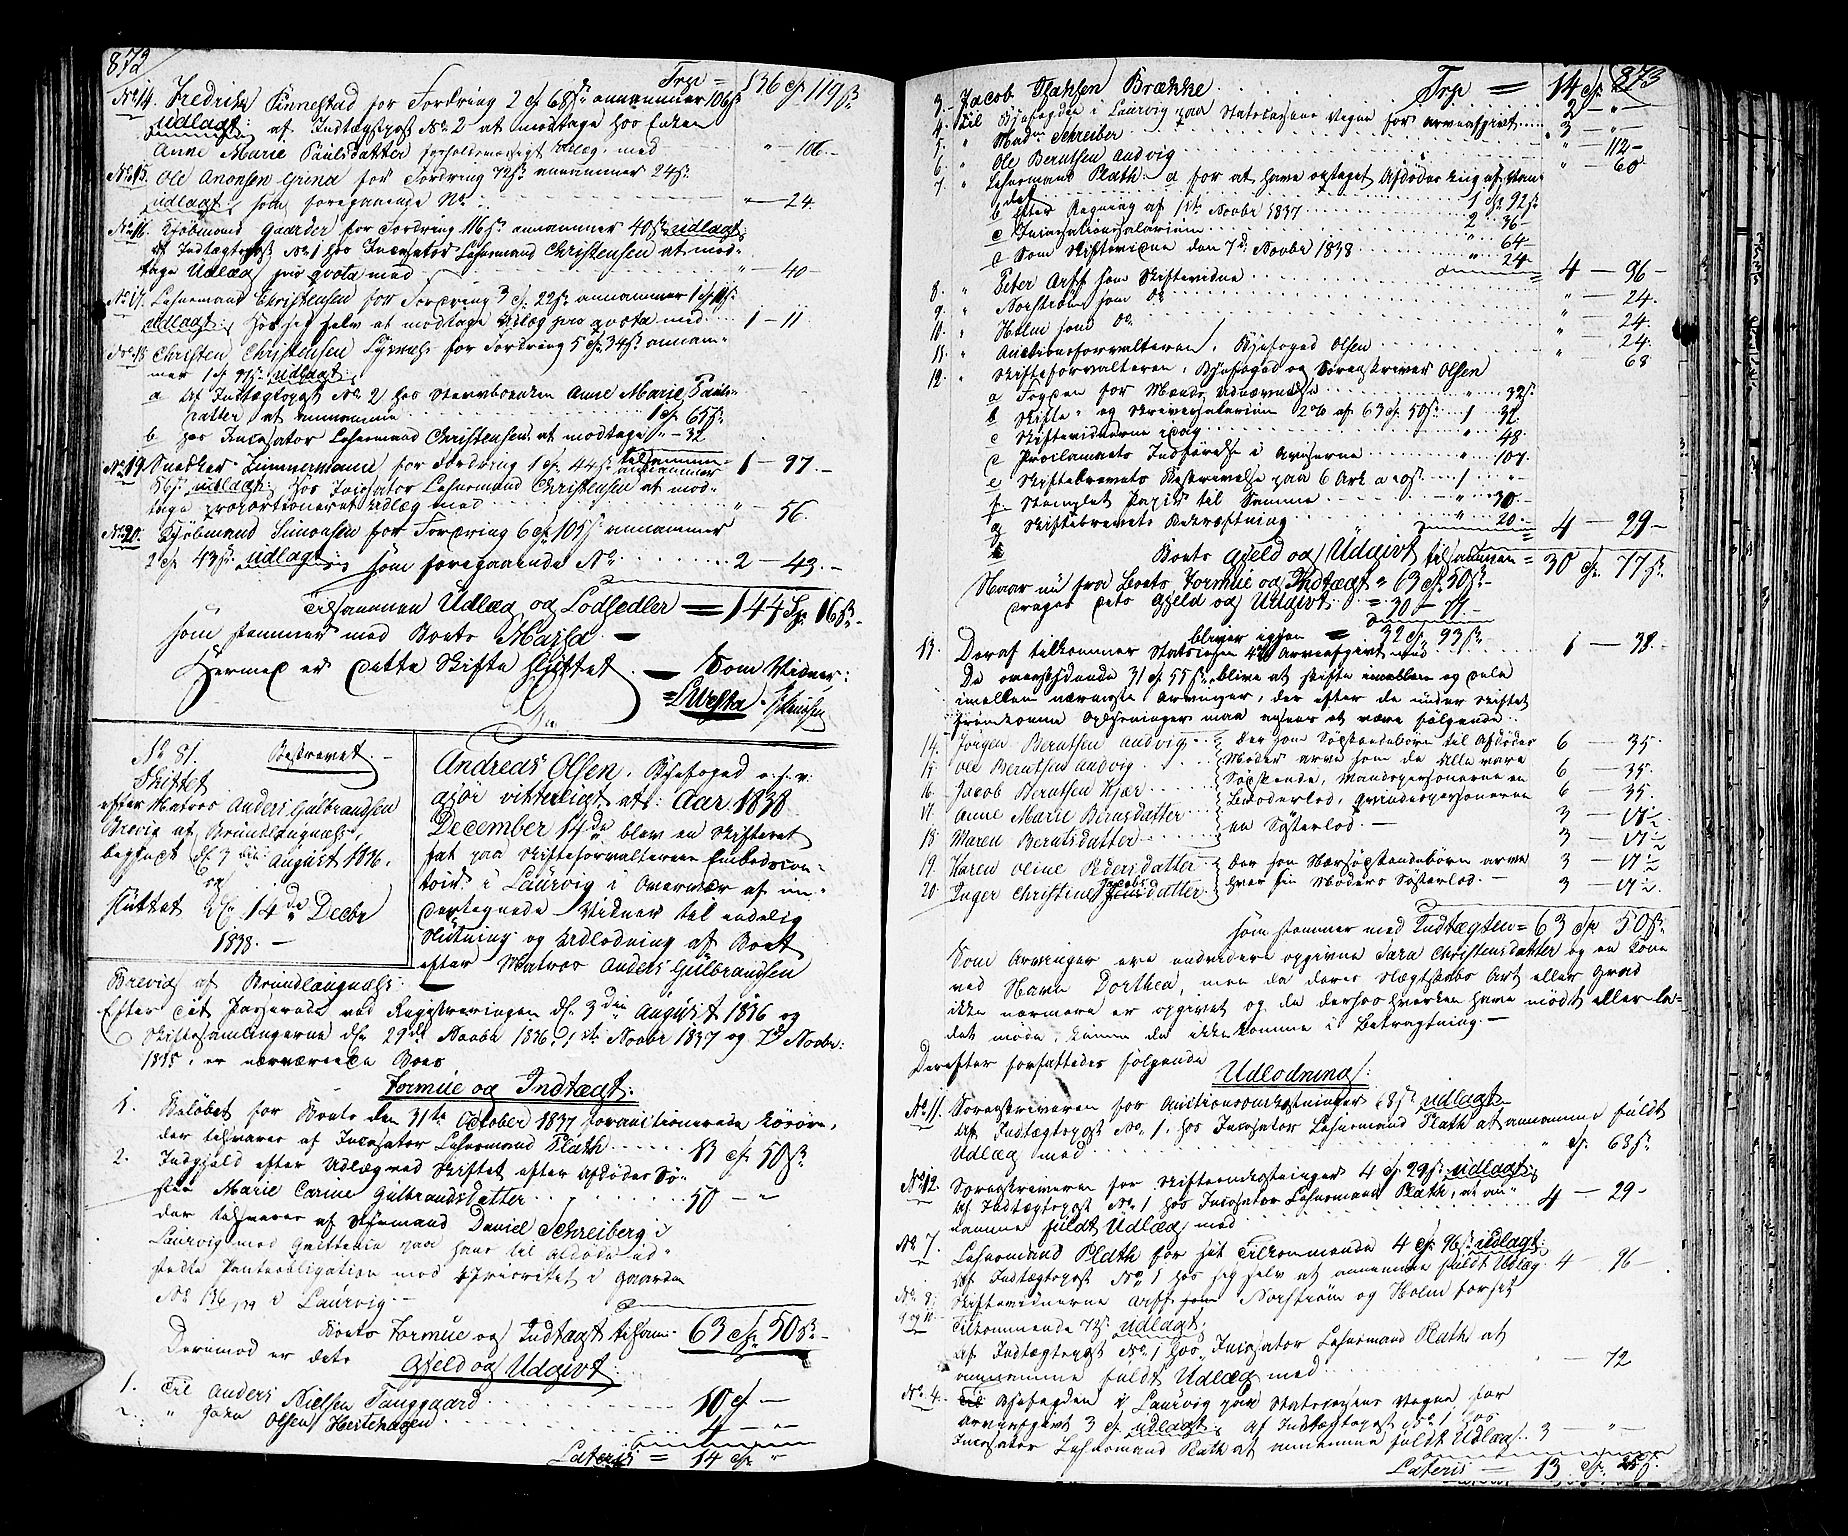 872
Trp = 136 Sp 119 ß
No 14. Fredrik Pinnestad for Fordring 2 Sp 68 ß annammer 106 ß
udlagt: af Indtægtspost No 2 at modtage hos Enken
Anne Marie Paulsdatter forholdsmæssigt Udlæg med " — 106 —
No 15. Ole Anonsen Grina for Fordring 72 ß annammer 24 ß
udlagt: som foregaaende No " — 24
No 16. Kjøbmand Gaarder for Fordring 116 ß annammer 40 ß udlagt:
Af Indtægtspost No 1 hos Incassator Lehnsmand Christensen at mod-
tage Udlæg pro qvota med " — 40 —
No 17. Lehnsmand Christensen for Fordring 3 Sp 22 ß annammer 1 Sp 11 ß
udlagt: Hos sig selv at modtage Udlæg pro qvota med 1 — 11
No 18 Christen Christensen for Fordring 5 Sp 34 ß annam-
mer 1 Sp 97 ß udlagt:
a Af Indtægtspost No 2 hos Stervboenken Anne Marie Pauls-
datter at annamme 1 Sp 65 ß
b hos Incassator Lehnsmand Christensen at modtage " — 32
tilsammen 1 — 97 —
No 19. Snedker Zimmermann for Fordring 1 Sp 44 ß annammer
56 ß udlagt: Hos Incassator Lehnsmand Christensen at mod-
tage proportioneret Udlæg med " — 56.
No 20. Kjøbmand Simonsen for Fordring 6 Sp 105 ß annammer
2 Sp 43 ß udlagt: som foregaaende No 2 — 43 —
Tilsammen Udlæg og Lodsedler = 144 Sp 16 ß
som stemmer med Boets Massa. —
Hermed er dette Skifte sluttet. — Som Vidner:
No 81. Beskrevet
Skiftet
efter Matros Anders Gulbrandsen
Brevig af Brunlaugnæss,
begyndt d. 3die August 1836.
og
sluttet d. 14de Decbr
1838. —
Andreas Olsen, Byefoged o.s.v.
gjør vitterligt at: Aar 1838
December 14de blev en Skifteret
sat paa Skifteforvalterens Embedscon-
toir i Laurvig i Overvær af un-
dertegnede Vidner til endelig
Slutning og Udlodning af Boet
efter Matros Anders Gulbrandsen
Brevig af Brunlaugnæss.
Efter det Passerede ved Registreringen d. 3die August 1836 og
Skiftesamlingerne d. 29de Novbr 1836, 1ste Novbr 1837 og 7de Novbr:
er nærværende Boes
Formue og Indtægt:
1. Beløbet for Boets den 31te October 1837 forauctionerede Løsøre,
der tilsvares af Incassator Lehnsmand Plath 13 Sp 50 ß
2. Indgjeld efter Udlæg ved Skiftet efter Afdødes Sø-
ster Marie Carine Gulbrandsdatter 50 — "
der tilsvares af Styrmand Daniel Schreiberg i
Laurvig mod Qvittering paa hans til Afdøde ud-
stedte Panteobligation med Prioritet i Gaarden
No 136 i Laurvig. —
Boets Formue og Indtægt tilsam. 63 Sp 50 ß —
Derimod er dets Gjeld og Udgivt:
1. Til Anders Nielsen Tanggaard 10 Sp —
2. " Olsen Hertehagen 4 — "
Lateris = 14 Sp "
873
Trp = 14 Sp
3. Jacob Brække 2 — "
4. Til Byefogden i Laurvig paa Statscassens Vegne for Arveafgivt 3 — "
5. " Mad. Schreiber " — 112 —
6. " Ole Berntsen Andvig " — 60
7. " Lehnsmand Plath: a for at have opsøgt Afdødes Liig af Van-
det 1 Sp 92 ß
b Efter Regning af 1ste Novbr 1837 2 36 —
c Incassationssalarium " 64 —
d Som Skiftevidne den 7de Novbr 1838 " 24 —
4 — 96 —
8. " Peter Arff som Skiftevidne " — 24.
9. " Norstrøm som Do " — 24.
10. " Holm som Do " — 24
11. " Auctionsforvalteren, Byefoged Olsen " — 68
12. " Skifteforvalteren, Byefoged og Sorenskriver Olsen
a Fogden for Mands Udnævnelse " 32 ß
b Skifte- og Skriversalarium 2% af 63 Sp 50 ß 1 32
c Skiftevidnerne idag " 48
d Proclamaets Indførelse i Aviserne " 107
e Skiftebrevets Beskrivelse paa 6 Ark 1 "
f Stemplet Papir til Samme " 30 —
g Skiftebrevets Bekræftning " 20 —
4 — 29 —
Boets Gjeld og Udgivt tilsammen = 30 Sp 77 ß
Naar nu fra Boets Formue og Indtægt = 63 Sp 50 ß —
drages dets Gjeld og Udgivt = 30 — 77 —
bliver igjen = 32 Sp 93 ß
13. Deraf tilkommer Statscassen 4% Arveafgivt med 1 — 38 —
De overskydende 31 Sp 55 ß blive at skifte imellem og dele
imellem nærmeste Arvinger, der efter de under Skiftet
fremkomne Oplysninger maa ansees at være følgende
14. Jørgen Berntsen Andvig 6 — 35.
15 Ole Berntsen Andvig 6 — 35.
16 Jacob Berntsen Kjær 6 — 35
17 Anne Marie Berntsdatter 3 — 17½
18 Maren Berntsdatter 3 — 17½
der som Søskendebørn til Afdødes
Moder arve som de Alle vare
Søskende, Mandspersonerne en
Broderlod, Qvindespersonerne
en Søsterlod —
19 Karen Oline Pedersdatter 3 — 17½
20 Inger Christine Jacobsdatter 3 — 17½
der som Næstsøskendebørn arve
hver sin Moders Søsterlod. —
som stemmer med Indtægten = 63 Sp 50 ß
Som Arvinger ere endvidere opgivne Sara Christensdatter og en Kone
ved Navn Dorthea, men da deres Slægtskabs Art eller Grad
ikke nærmere er opgivet og da derhos hverken have mødt eller la-
det møde, kunne de ikke komme i Betragtning. —
Derefter forfattedes følgende Udlodning:
No 11. Sorenskriveren for Auctionsomkostninger 68 ß udlagt
Af Indtægtspost No 1. hos Incassator Lehnsmand Plath at annamme fuldt
Udlæg med " Sp 68 ß
No 12. Sorenskriveren for Skifteomkostninger 4 Sp 29 ß udlagt:
Af Indtægtspost No 1 hos Incassator Lehnsmand Plath, at an-
namme fuldt Udlæg med 4 — 29 —
No 7. Lehnsmand Plath for sit Tilkommende 4 Sp 96 ß udlagt:
Af Indtægtspost No 1 hos sig selv at annamme fuldt Udlæg 4 — 96 —
No 8, 9 og 10 Skiftevidnerne Arff, Norstrøm og Holm for sit
Tilkommende 72 ß udlagt:
Af Indtægtspost No 1 hos Incassator Lehnsmand Plath at
annamme fuldt Udlæg med — 72
No 4. Byefogden i Laurvig paa Statscassens Vegne for
Arveafgivt 3 Sp udlagt: Af Indtægtspost No 1 hos
Incassator Lehnsmand Plath at annamme fuldt Udlæg 3 — " —
Lateris = 13 Sp